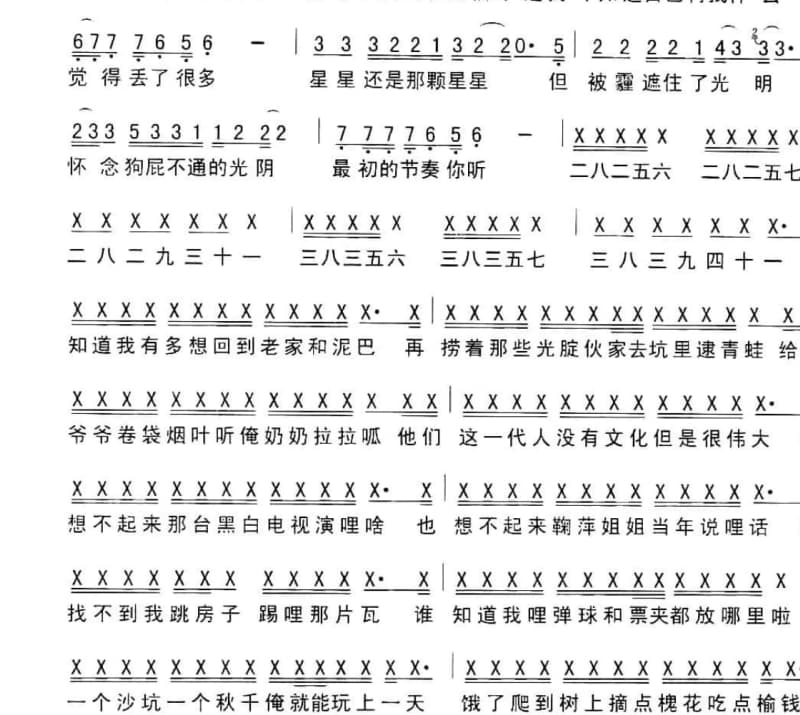 6 7 7 7 6 5 6 — | 3 3 3 2 2 1 3 2 2 0· 5 | 2 2 2 2 1 4 3 3 3·
觉得丢了很多 星星还是那颗星星 但 被霾遮住了光明
2 3 3 5 3 3 1 1 2 2 2 | 7 7 7 7 6 5 6 — | X X X X X X X X X X
怀念狗屁不通的光阴 最初的节奏你听 二八二五六 二八二五七
X X X X X X X | X X X X X X X X X X | X X X X X X X·
二八二九三十一 三八三五六 三八三五七 三八三九四十一
X X X X X X X X X X X X X· X | X X X X X X X X X X X X X X X X
知道我有多想回到老家和泥巴 再 捞着那些光腚伙家去坑里逮青蛙 给
X X X X X X X X X X X X X X X | X X X X X X X X X X X X X·
爷爷卷袋烟叶听俺奶奶拉拉呱 他们 这一代人没有文化但是很伟大
X X X X X X X X X X X X X· X | X X X X X X X X X X X X X·
想不起来那台黑白电视演哩啥 也 想不起来鞠萍姐姐当年说哩话
X X X X X X X X X X X X· X | X X X X X X X X X X X X X X X
找不到我跳房子踢哩那片瓦 谁 知道我哩弹球和票夹都放哪里啦
X X X X X X X X X X X X X X X X· | X X X X X X X X X X X X X X
一个沙坑一个秋千俺就能玩上一天 饿了爬到树上摘点槐花吃点榆钱